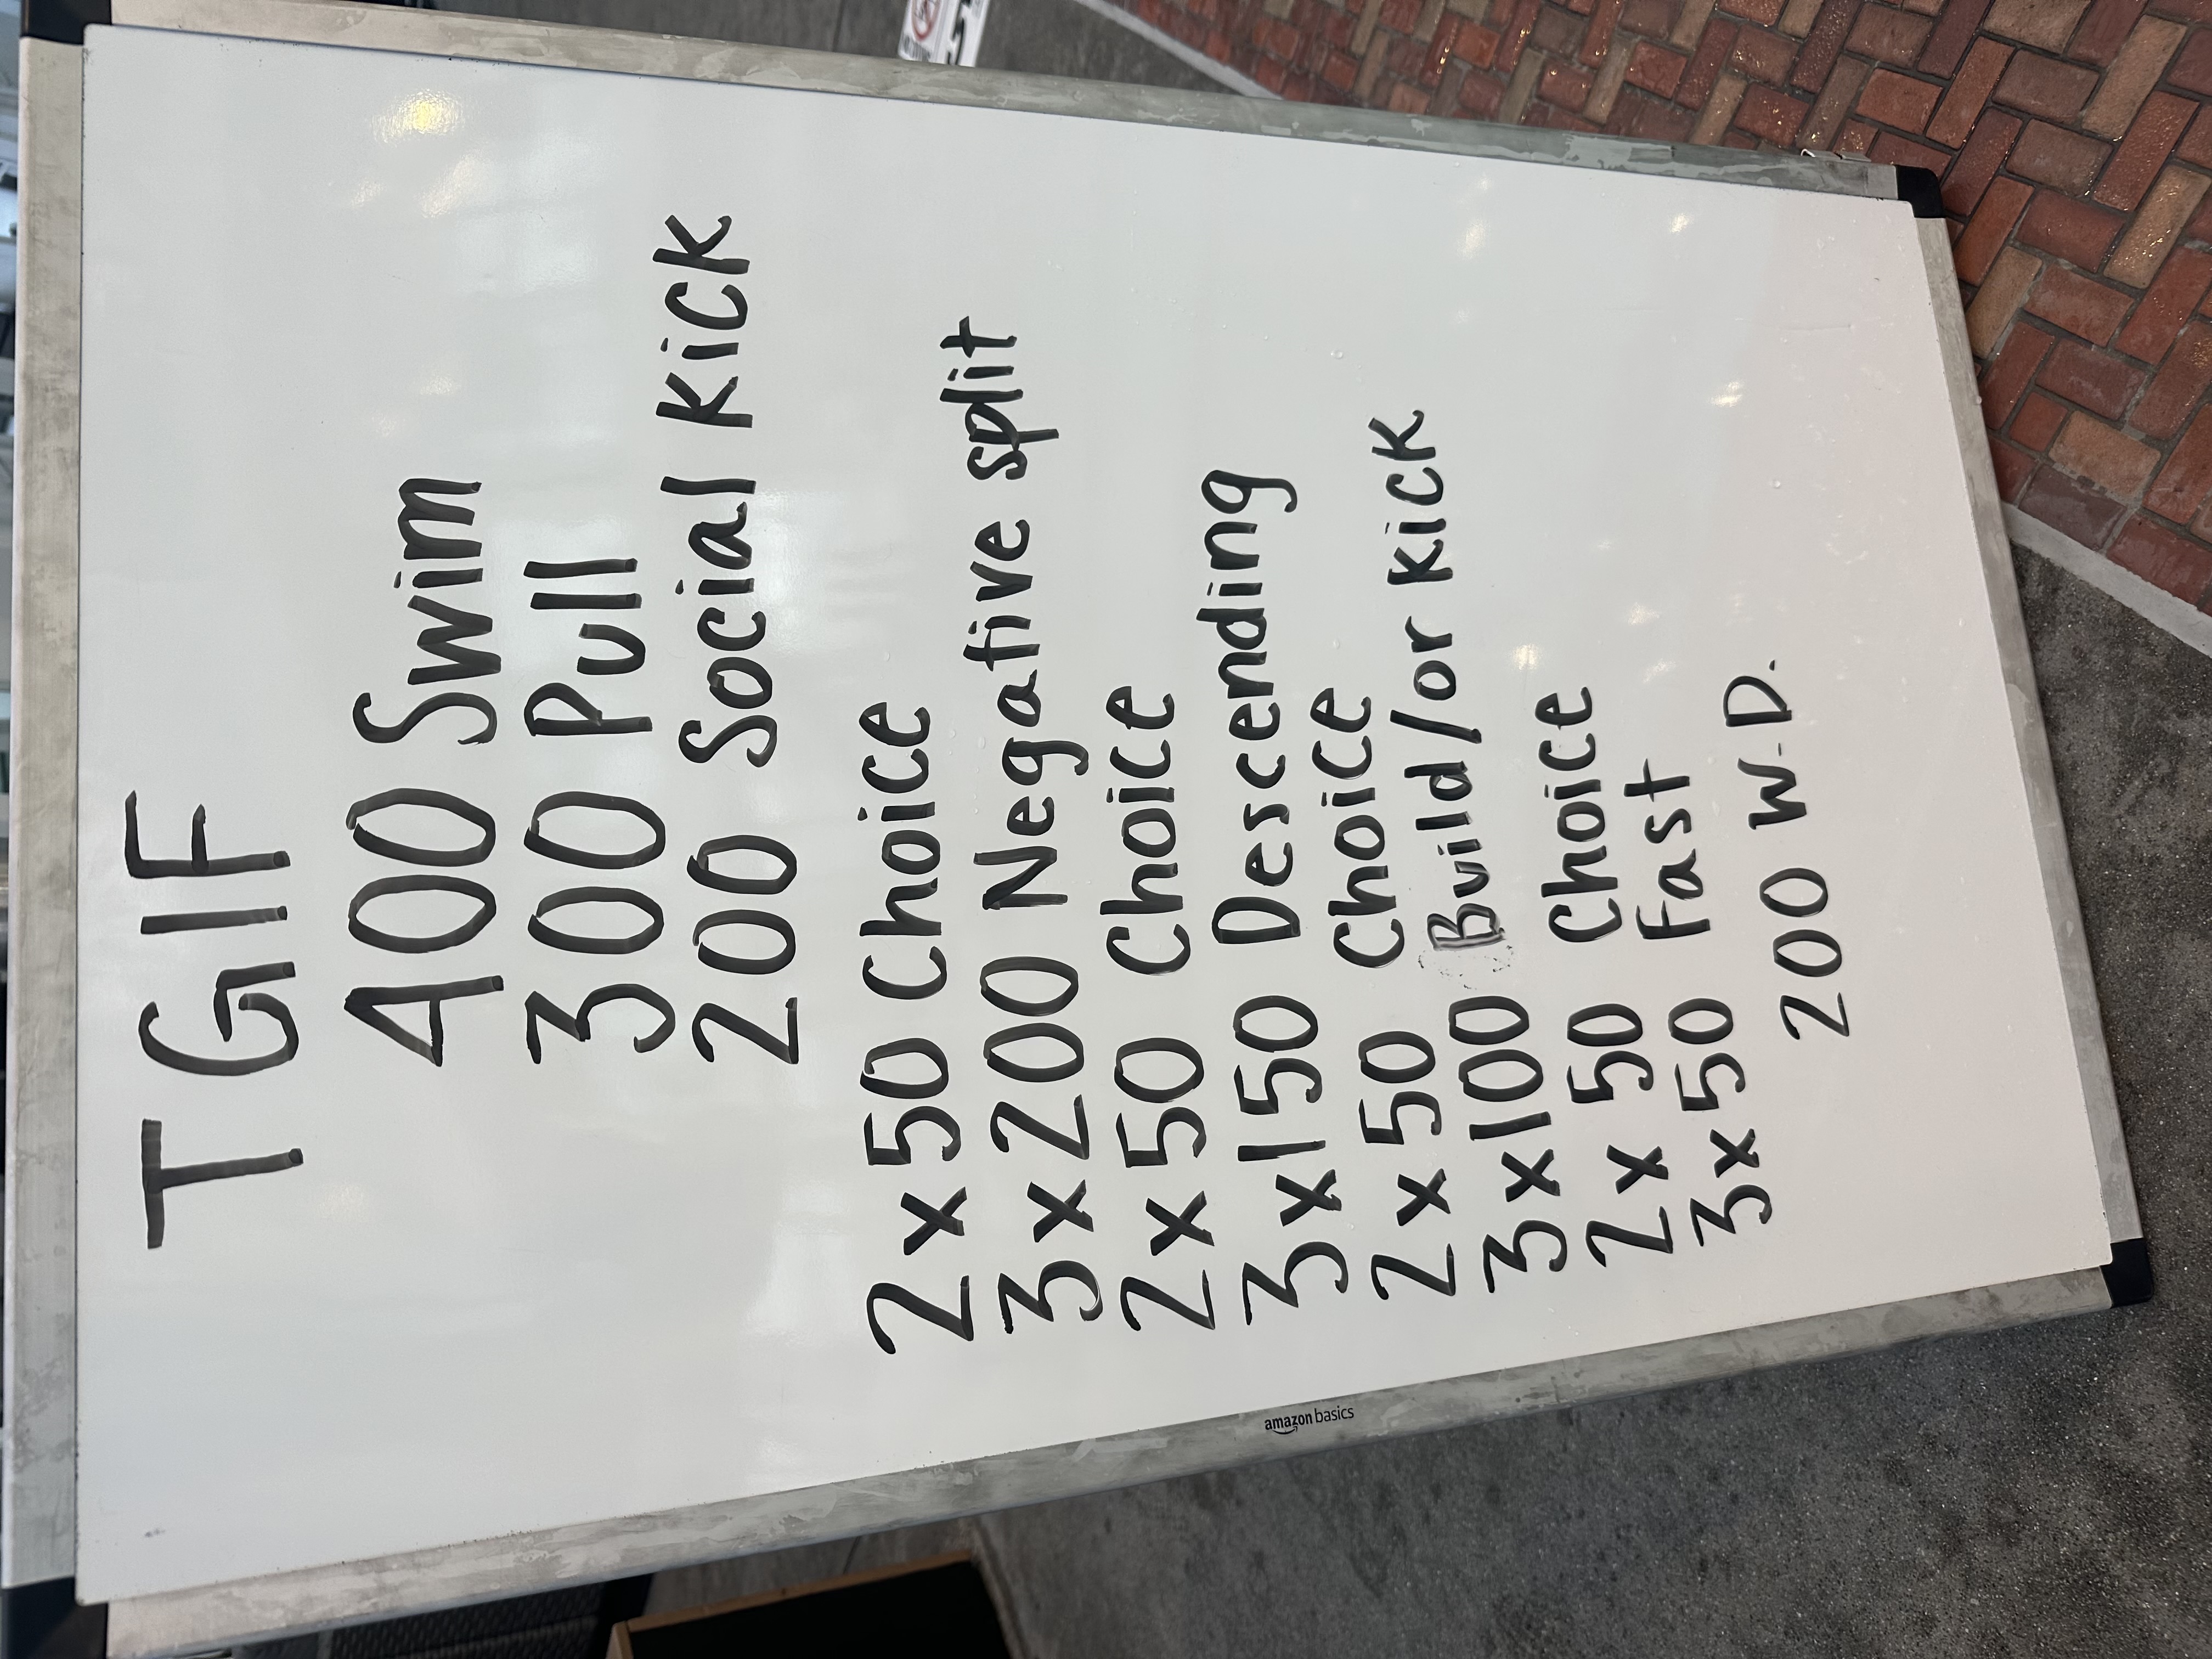 TGIF
400 Swim
300 Pull
200 Social Kick
2x50 Choice
3x200 Negative split
2x50 Choice
3x150 Descending
2x50 Choice
3x100 Build/or kick
2x50 Choice
3x50 Fast
200 W.D.
amazon basics